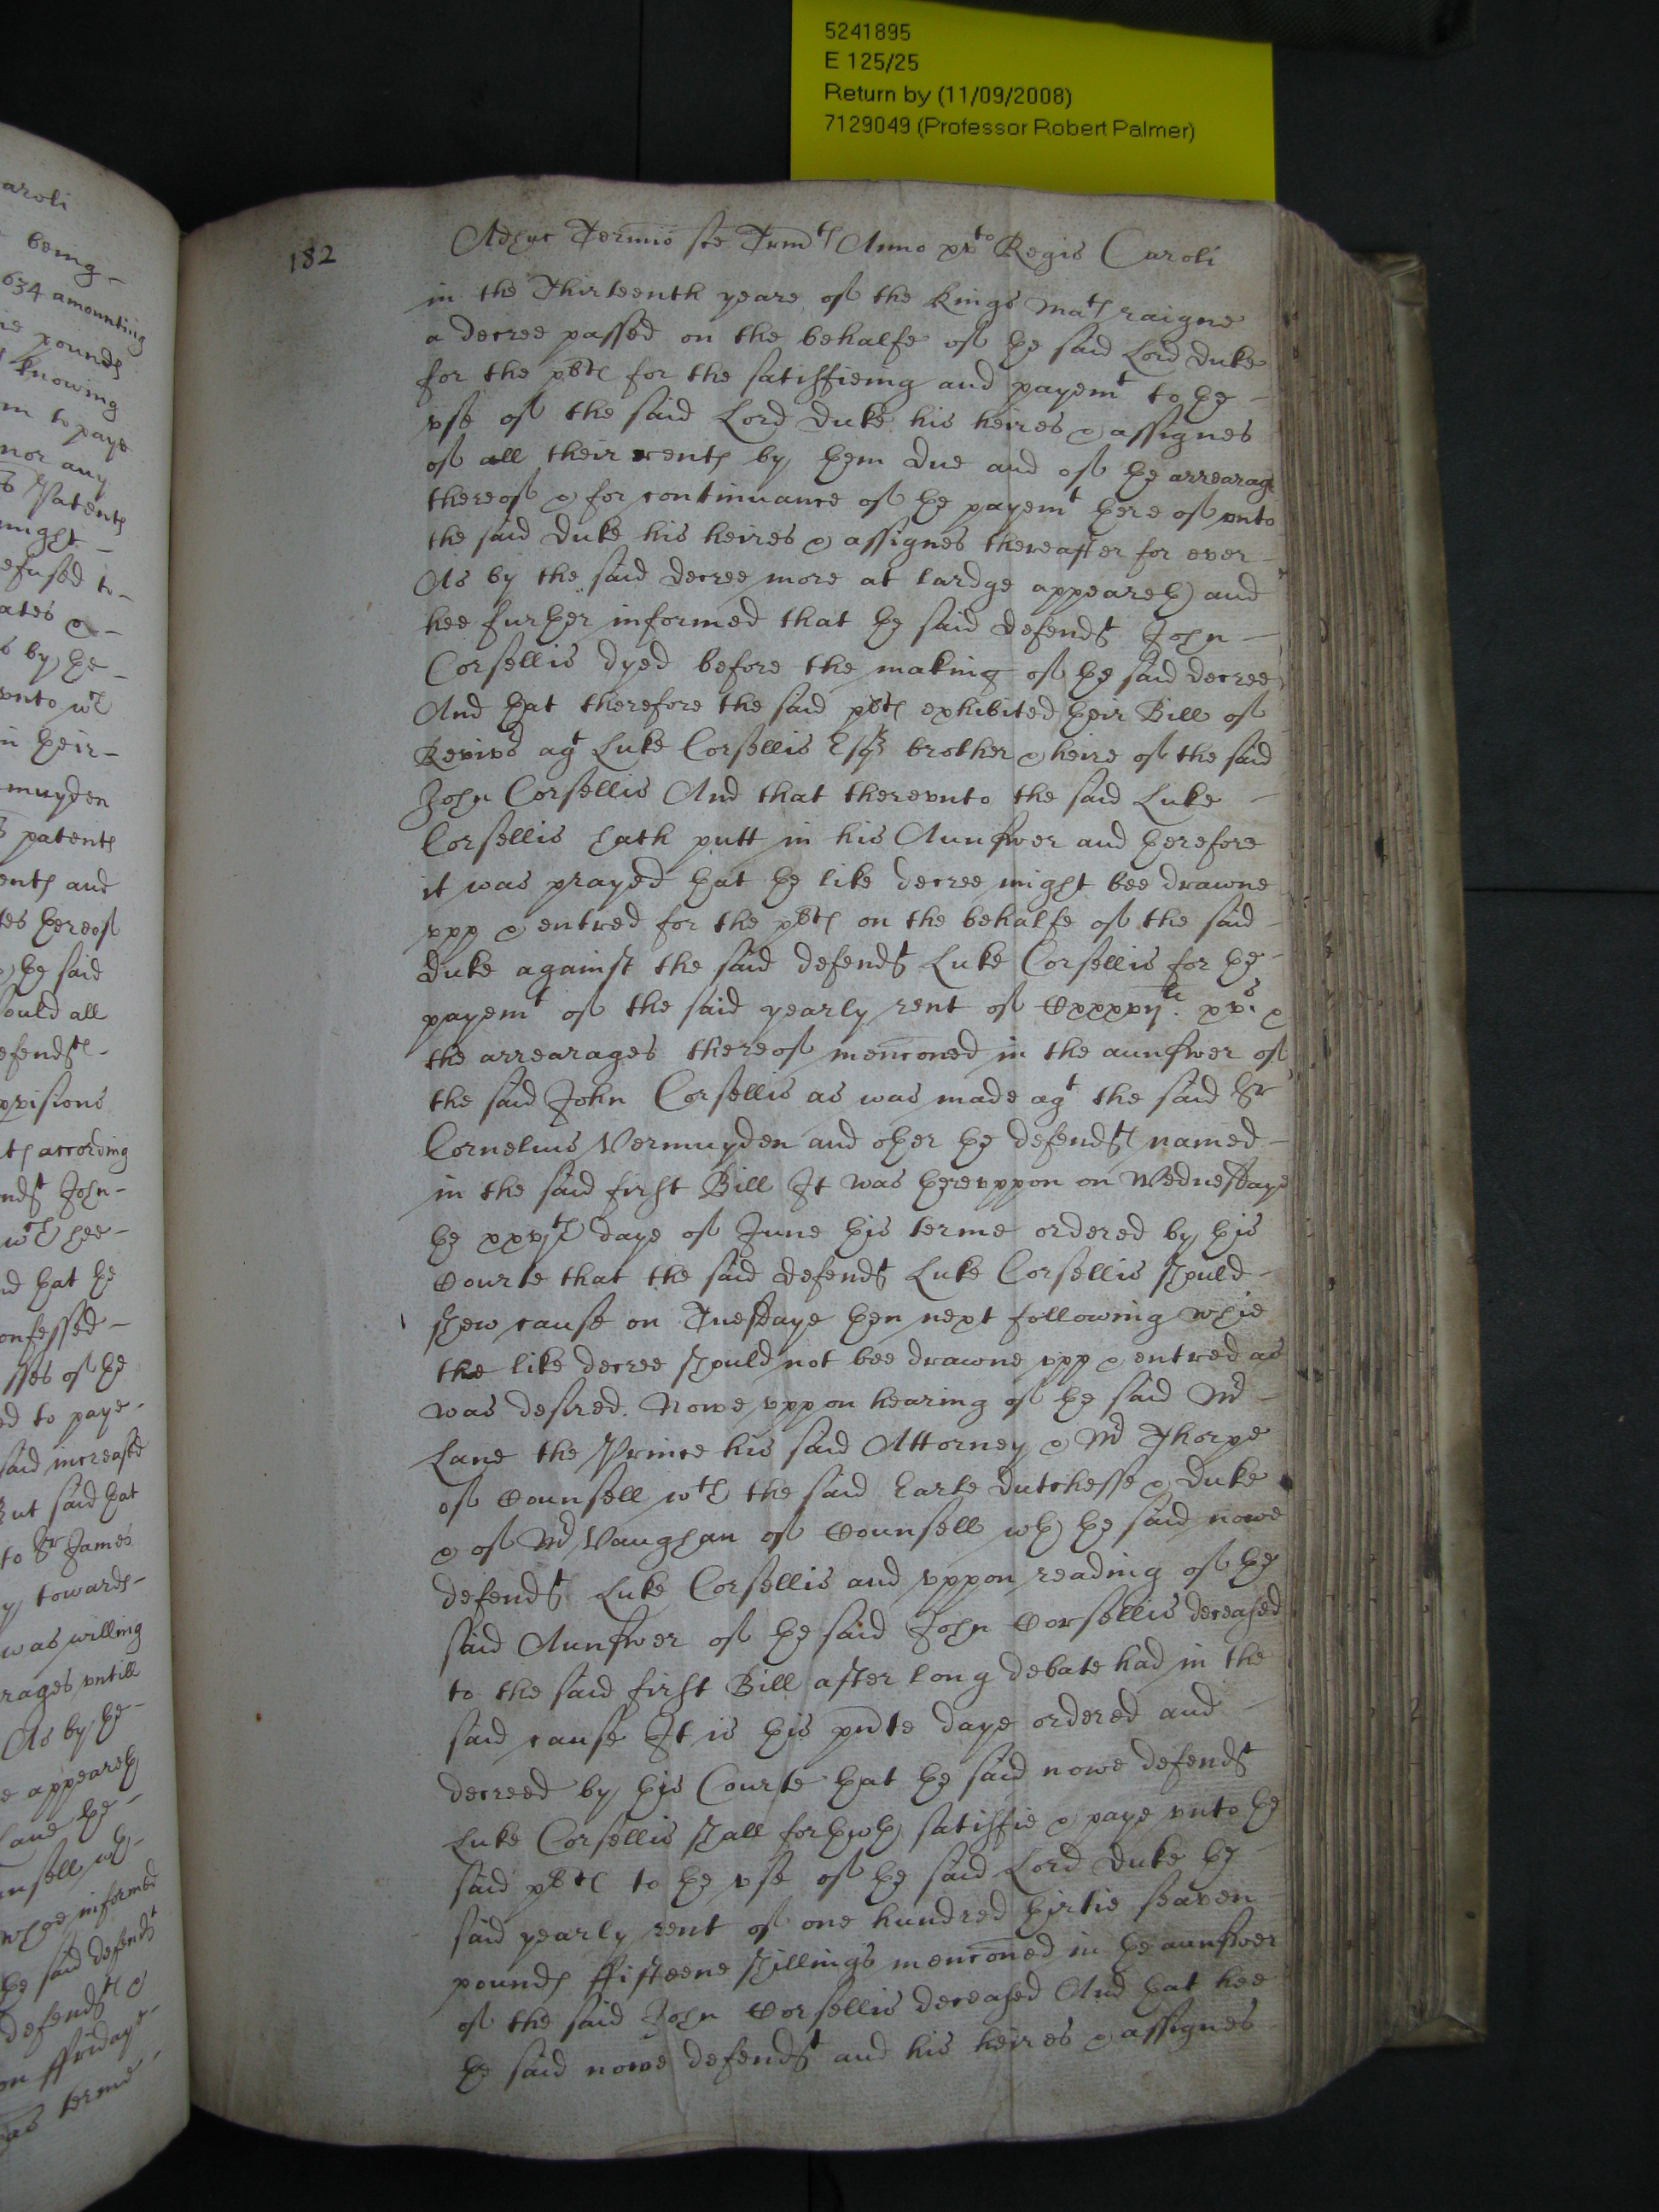 5241895
E 125/25
Return by (11/09/2008)
7129049 (Professor Robert Palmer)
182
Adhuc Termio sce Trinit Anno xvto Regis Caroli
in the Thirteenth yeare of the kings Mats raigne
a decree passed on the behalfe of the said Lord Duke
for the plts for the satisfieing and payemt to the
vse of the said Lord Duke his heires & assignes
of all their rents by them due and of the arrearags
thereof & for continuance of the payemt thereof vnto
the said Duke his heires & assignes thereafter for ever
As by the said decree more at lardge appeareth and
hee further informed that the said defendt John
Corsellis dyed before the making of the said decree
And that therefore the said plts exhibited their Bill of
Revivo agt Luke Corsellis Esqr brother & heire of the said
John Corsellis And that therevnto the said Luke
Corsellis hath putt in his Aunswer and therefore
it was prayed that the like decree might bee drawne
vpp & entred for the plts on the behalfe of the said
Duke against the said defendt Luke Corsellis for the
payemt of the said yearly rent of Cxxxvijli. xvs. &
the arrearages thereof menconed in the aunswer of
the said John Corsellis as was made agt the said Sr
Cornelius Vermuyden and other the defendts named
in the said first Bill It was therevppon on Wednesdaye
the xxvjth daye of June this terme ordered by this
Courte that the said defendt Luke Corsellis should
shew cause on Tuesdaye then next following whie
the like decree should not bee drawne vpp & entred as
was desired. Nowe vppon hearing of the said Mr
Lane the Prince his said Attorney & Mr Thorpe
of Counsell wth the said Earle Dutchesse & Duke
& of Mr Vaughan of Counsell wth the said nowe
defendt Luke Corsellis and vppon reading of the
said Aunswer of the said John Corsellis deceased
to the said first Bill after long debate had in the
said cause It is this pnte daye ordered and
decreed by this Courte that the said nowe defendt
Luke Corsellis shall forthwth satisfie & paye vnto the
said plts to the vse of the said Lord Duke the
said yearly rent of one hundred thirtie seaven
pounds ffifteene shillings menconed in the aunswer
of the said John Corsellis deceased And that hee
the said nowe defendt and his heires & assignes